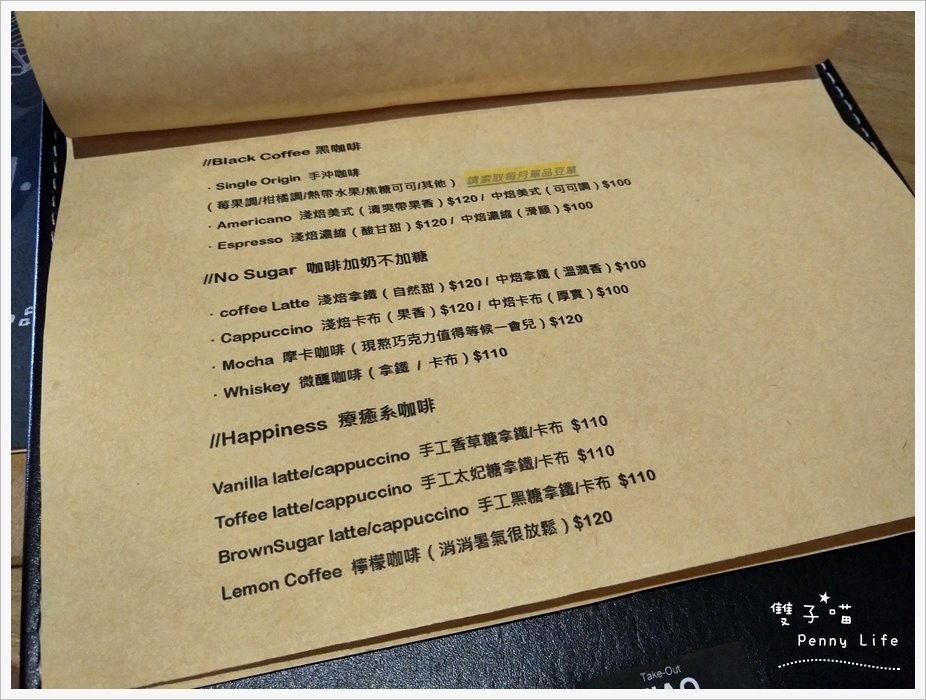 //Black Coffee 黑咖啡
· Single Origin 手沖咖啡
(莓果調/柑橘調/熱帶水果/焦糖可可/其他) 請索取每月單品豆單
· Americano 淺焙美式(清爽帶果香)$120/ 中焙美式(可可調)$100
· Espresso 淺焙濃縮(酸甘甜)$120/ 中焙濃縮(滑順)$100
//No Sugar 咖啡加奶不加糖
· coffee Latte 淺焙拿鐵(自然甜)$120/ 中焙拿鐵(溫潤香)$100
· Cappuccino 淺焙卡布(果香)$120/ 中焙卡布(厚實)$100
· Mocha 摩卡咖啡(現熬巧克力值得等候一會兒)$120
· Whiskey 微醺咖啡(拿鐵 / 卡布)$110
//Happiness 療癒系咖啡
Vanilla latte/cappuccino 手工香草糖拿鐵/卡布 $110
Toffee latte/cappuccino 手工太妃糖拿鐵/卡布 $110
BrownSugar latte/cappuccino 手工黑糖拿鐵/卡布 $110
Lemon Coffee 檸檬咖啡(消消暑氣很放鬆)$120
雙子喵
Penny Life
Take-Out